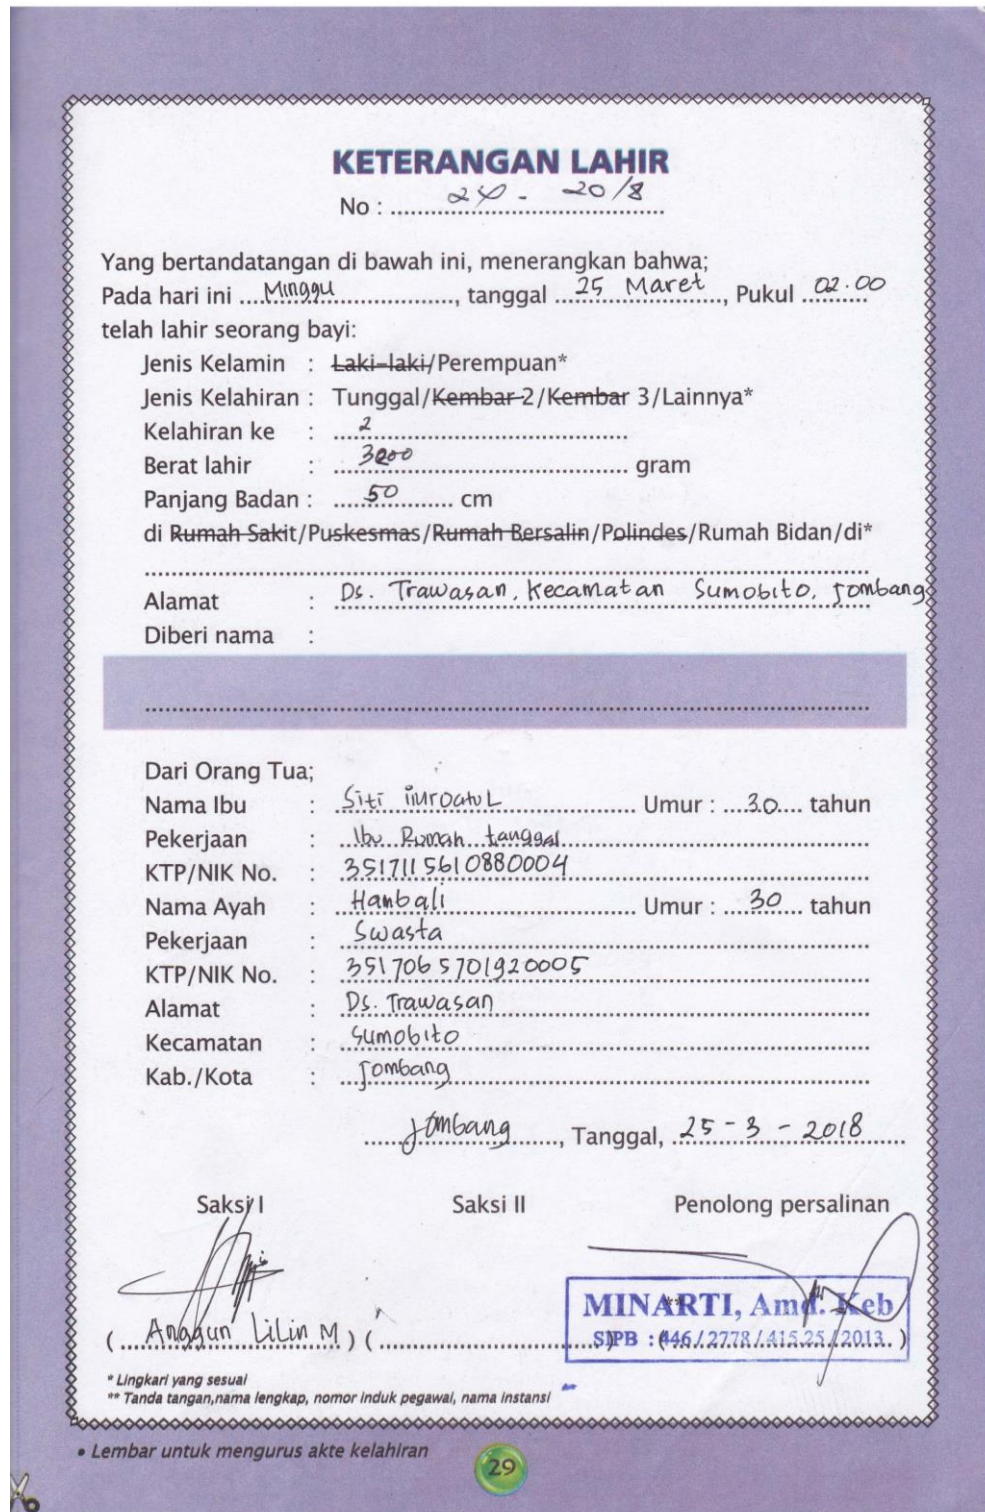 KETERANGAN LAHIR
No : 24 - 20/8
Yang bertandatangan di bawah ini, menerangkan bahwa;
Pada hari ini Minggu, tanggal 25 Maret, Pukul 02.00
telah lahir seorang bayi:
Jenis Kelamin : Laki-laki/Perempuan*
Jenis Kelahiran : Tunggal/Kembar 2/Kembar 3/Lainnya*
Kelahiran ke : 2
Berat lahir : gram
Panjang Badan : 50 cm
di Rumah Sakit/Puskesmas/Rumah Bersalin/Polindes/Rumah Bidan/di*
Alamat : Ds. Trawasan, Kecamatan Sumobito, Jombang
Diberi nama :
Dari Orang Tua;
Nama Ibu : Siti Umur : 30 tahun
Pekerjaan : Ibu Rumah tanggal
KTP/NIK No. : 3517115610880004
Nama Ayah : Hambali Umur : 30 tahun
Pekerjaan : Swasta
KTP/NIK No. : 3517065701920005
Alamat : Ds. Trawasan
Kecamatan : Sumobito
Kab./Kota : Jombang
Jombang, Tanggal, 25 - 3 - 2018
Saksi I Saksi II Penolong persalinan
MINARTI, Amd. Keb
(Anggun Lilin M) ( ) SIPB : 446/2778/415.25/2013
* Lingkari yang sesuai
** Tanda tangan,nama lengkap, nomor induk pegawai, nama instansi
• Lembar untuk mengurus akte kelahiran
29